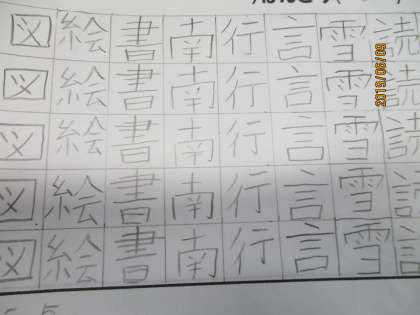 図絵書南行言雪読
図絵書南行言雪読
図絵書南行言雪読
図絵書南行言雪読
図絵書南行言雪
2019/06/09